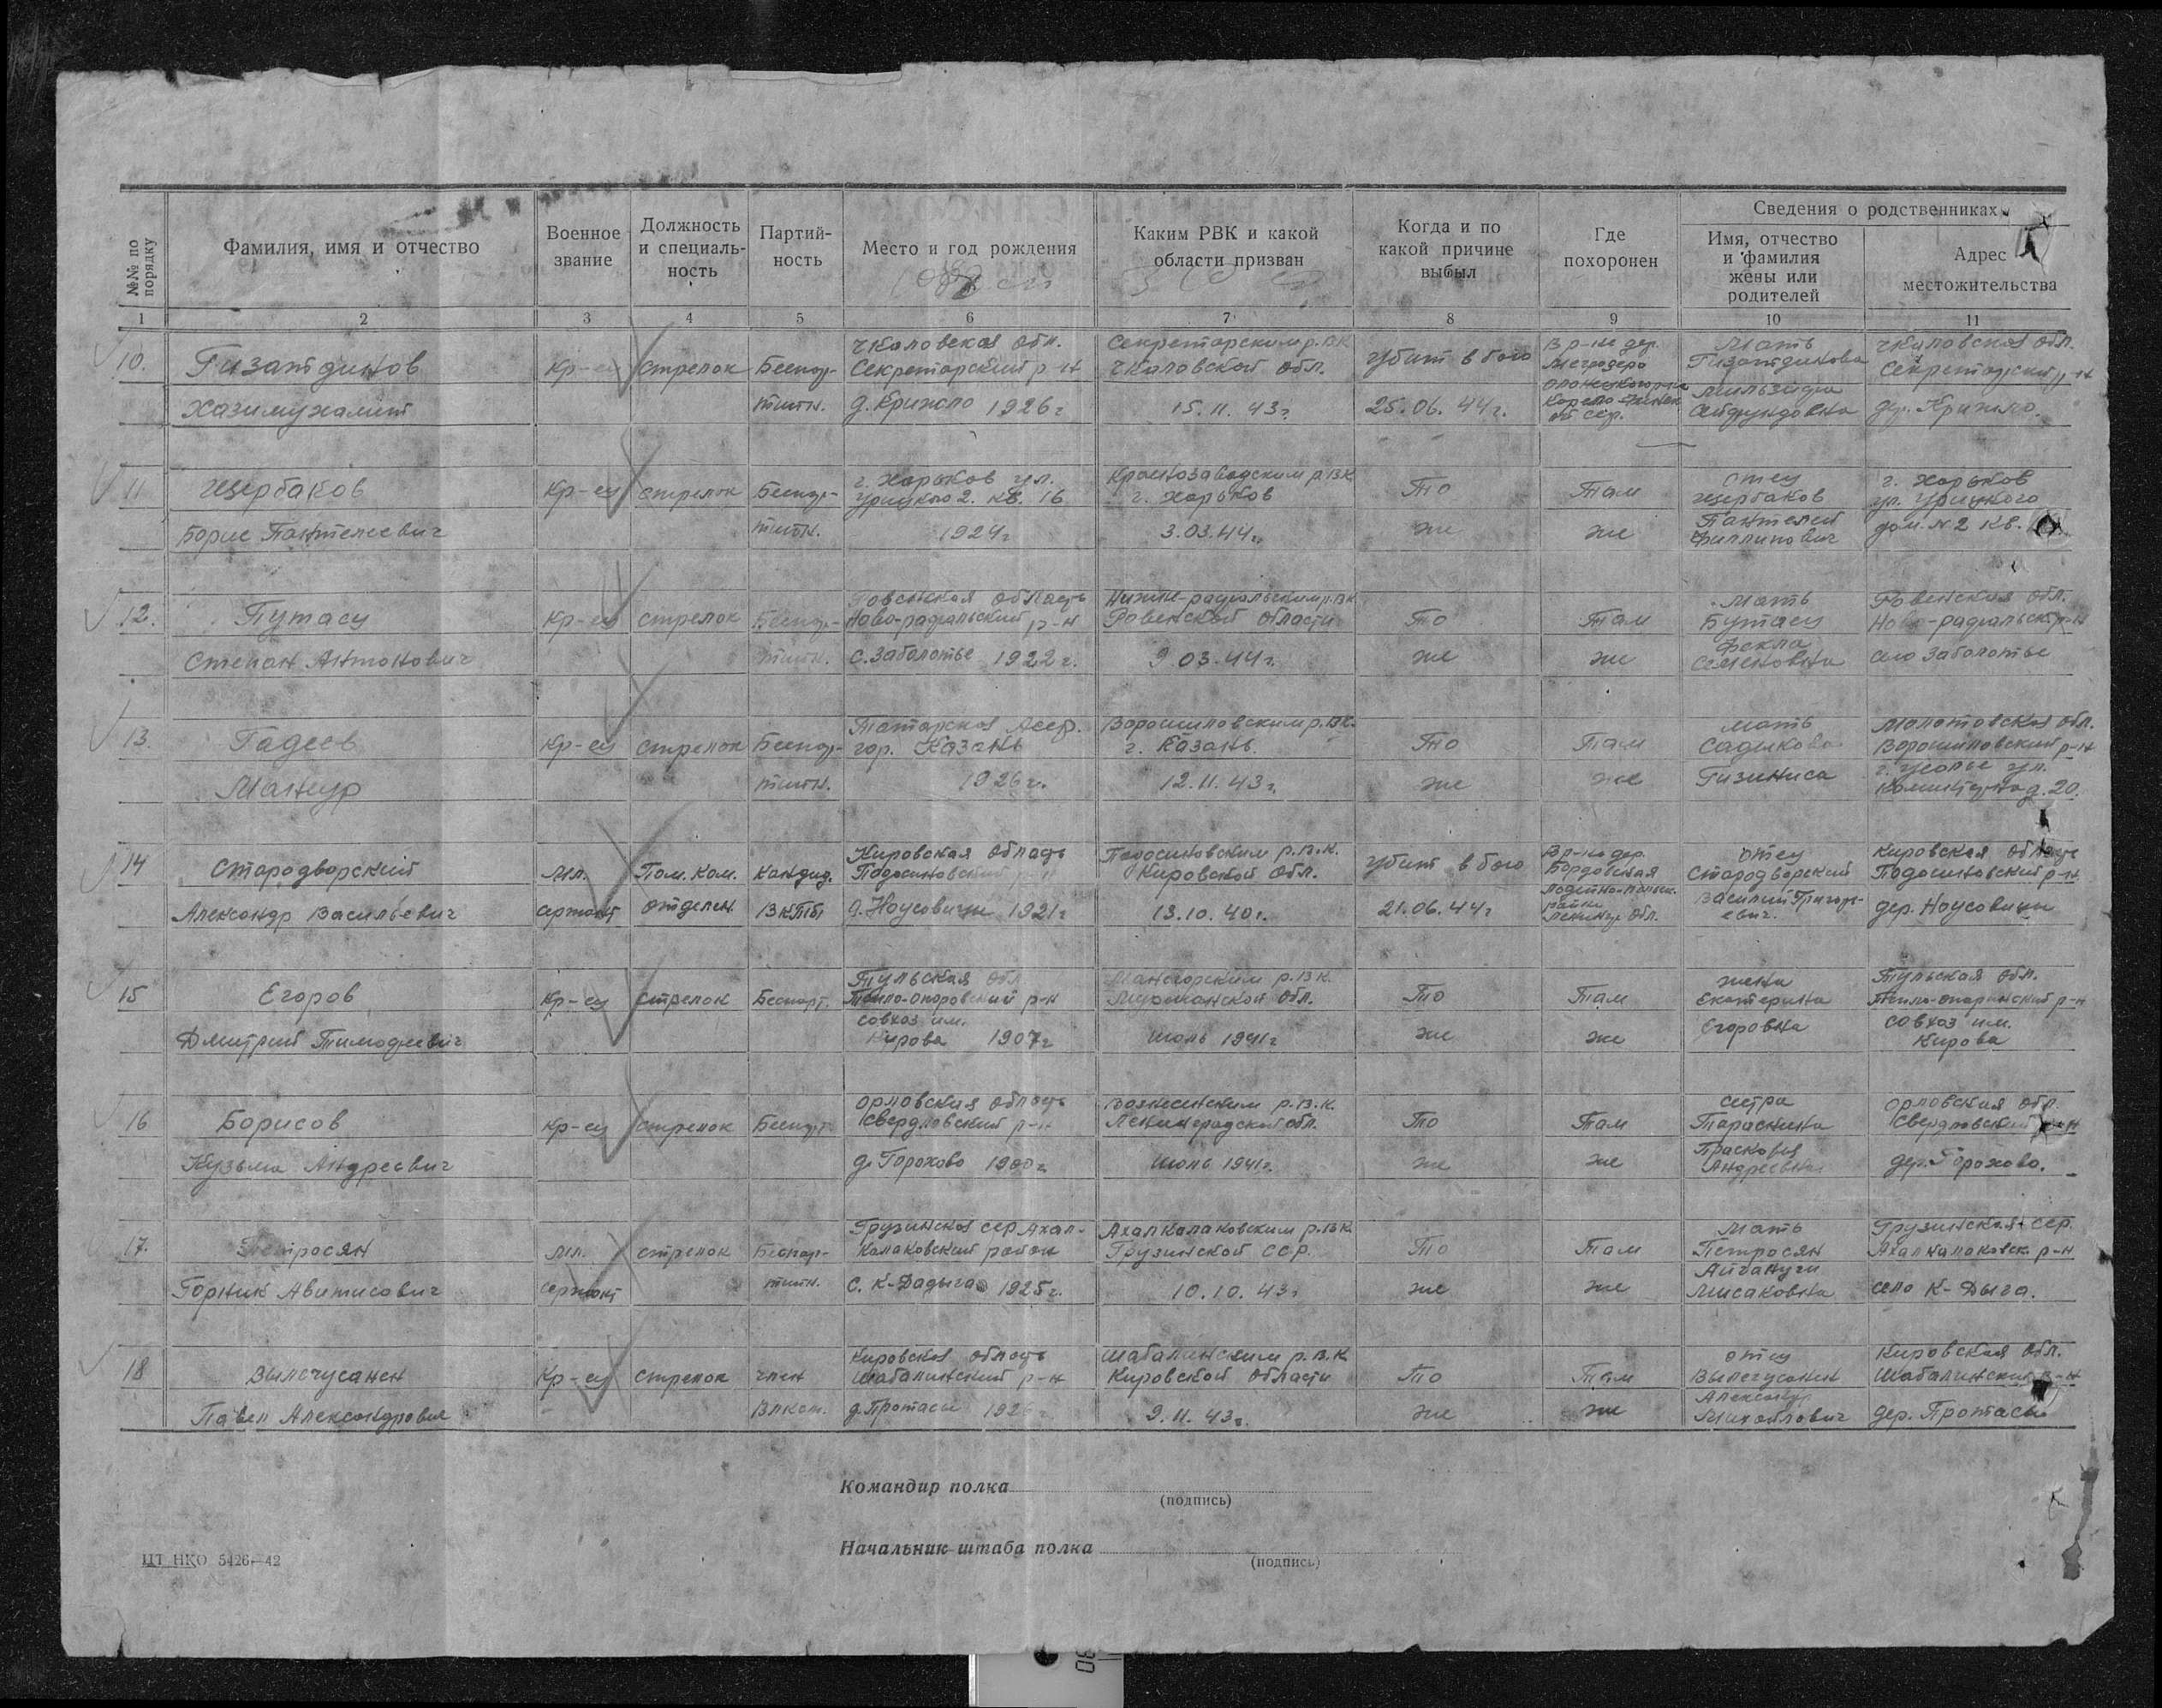 №№ по порядку
Фамилия, имя и отчество
Военное звание
Должность и специаль-ность
Партий-ность
Место и год рождения
Каким РВК и какой области призван
Когда и по какой причине выбыл
Где похоронен
Сведения о родственниках
Имя, отчество и фамилия жены или родителей
Адрес местожительства
1 2 3 4 5 6 7 8 9 10 11
Чкаловская обл. Секретарским р.ВК В р-не дер. Мать Чкаловская обл.
10. Гизатдинов Кр-ец стрелок Беспар- Секретарский р-н Чкаловской обл. убит в бою Мегрозеро Гизатдинова Секретарский р-н
Хазимухамит тийн. д. Крижпо 1926 г 15.11.43 г. 25.06.44 г. Мать
г. Харьков ул. Краснозаводским р.ВК отец г. Харьков
11 Щербаков Кр-ец стрелок Беспар- Урицкого 2. кв. 16 г. Харьков То Там Щербаков ул. Урицкого
Борис Пантелеевич тийн. 1924 г 3.03.44 г. же же Пантелей Филлипович дом. N 2 кв.
Ровенская область мать Ровенская обл.
12. Путасу Кр-ец стрелок Беспар- р-н Ровенской области То Там Бутасу
Степан Антонович тийн. с. Заболотье 1922 г. 9.03.44 г. же же Фекла Семеновна село Заболотье
Татарская Асср. Ворошиловским р.ВК. мать Молотовская обл.
13. Гадеев Кр-ец стрелок Беспар- гор. Казань г. Казань. То Там Садыкова Ворошиловский р-н
Манур тийн. 1926 г. 12.11.43 г. же же г. Усолье ул. Коминтерна д. 20.
Кировская область Подосиновским р.в.к. В р-не дер. отец Кировская область
14 Стародворский мл. Пом. Ком. Кандид. Подосиновский р-н Кировской обл. убит в бою Стародворский Подосиновский р-н
Александр Васильевич сержант отделен. ВКПб д. Ноусовицы 1921 г 13.10.40 г. 21.06.44 г Ленингр обл. Василий Григорь-евич. дер. Ноусовицы
Тульская обл р.ВК. жена Тульская обл.
15 Егоров Кр-ец стрелок Беспарт. р-н Мурманской обл. То Там Екатерина р-н
Дмитрий Тимофеевич совхоз им. Кирова 1907 г июль 1941 г же же Егоровна совхоз им. Кирова
Орловская область Вознесенским р.в.к. сестра Орловская обл.
16 Борисов Кр-ец стрелок Беспарт Свердловский р-н Ленинградской обл. То Там Тараскина Свердловский р-н
Кузьма Андреевич д. Горохово 1900 г июль 1941 г. же же Прасковья Андреевна дер. Горохово.
Грузинская сср Ахал- Ахалкалаковским р.ВК мать Грузинская сср.
17. Петросян мл. стрелок Беспар- Калаковский район Грузинской ССР. То Там Петросян Ахалкалаковск. р-н
Горник Аветисович сержант тийн. 1925 г. 10.10.43 г же же Мисаковна село К-Дыга.
Кировская область Шабалинским р.в.к. отец Кировская обл.
18 Вылегжанин Кр-ец стрелок член Шабалинский р-н Кировской области То Там Вылегжанин Шабалинский р-н
Павел Александрович Влксм. д. Протасы 1926 г 9.11.43 г. же же Александр Михайлович дер. Протасы
Командир полка
(подпись)
Начальник штаба полка
(подпись)
ЦТ НКО 5426—42